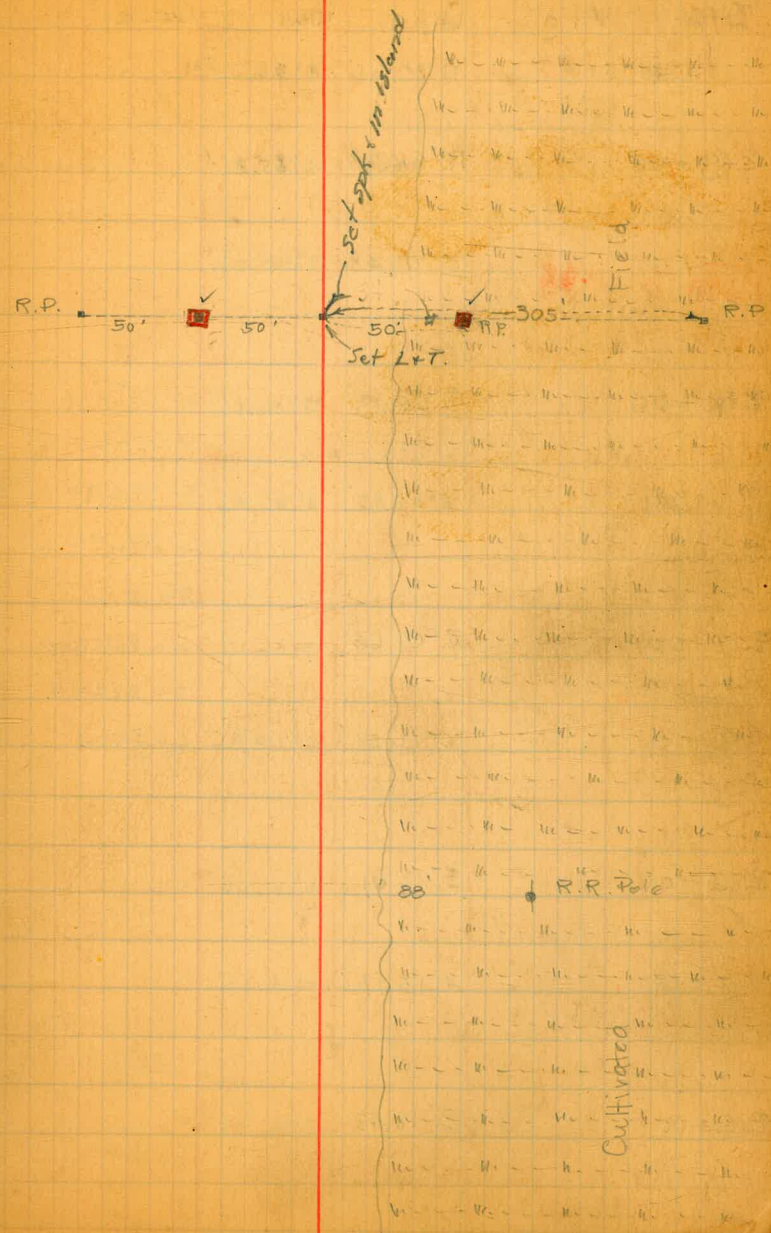 Set spk in island
Field
R.P. 50' 50' 50' R.P. 305 R.P
Set L&T.
88' R.R. Pole
Cultivated